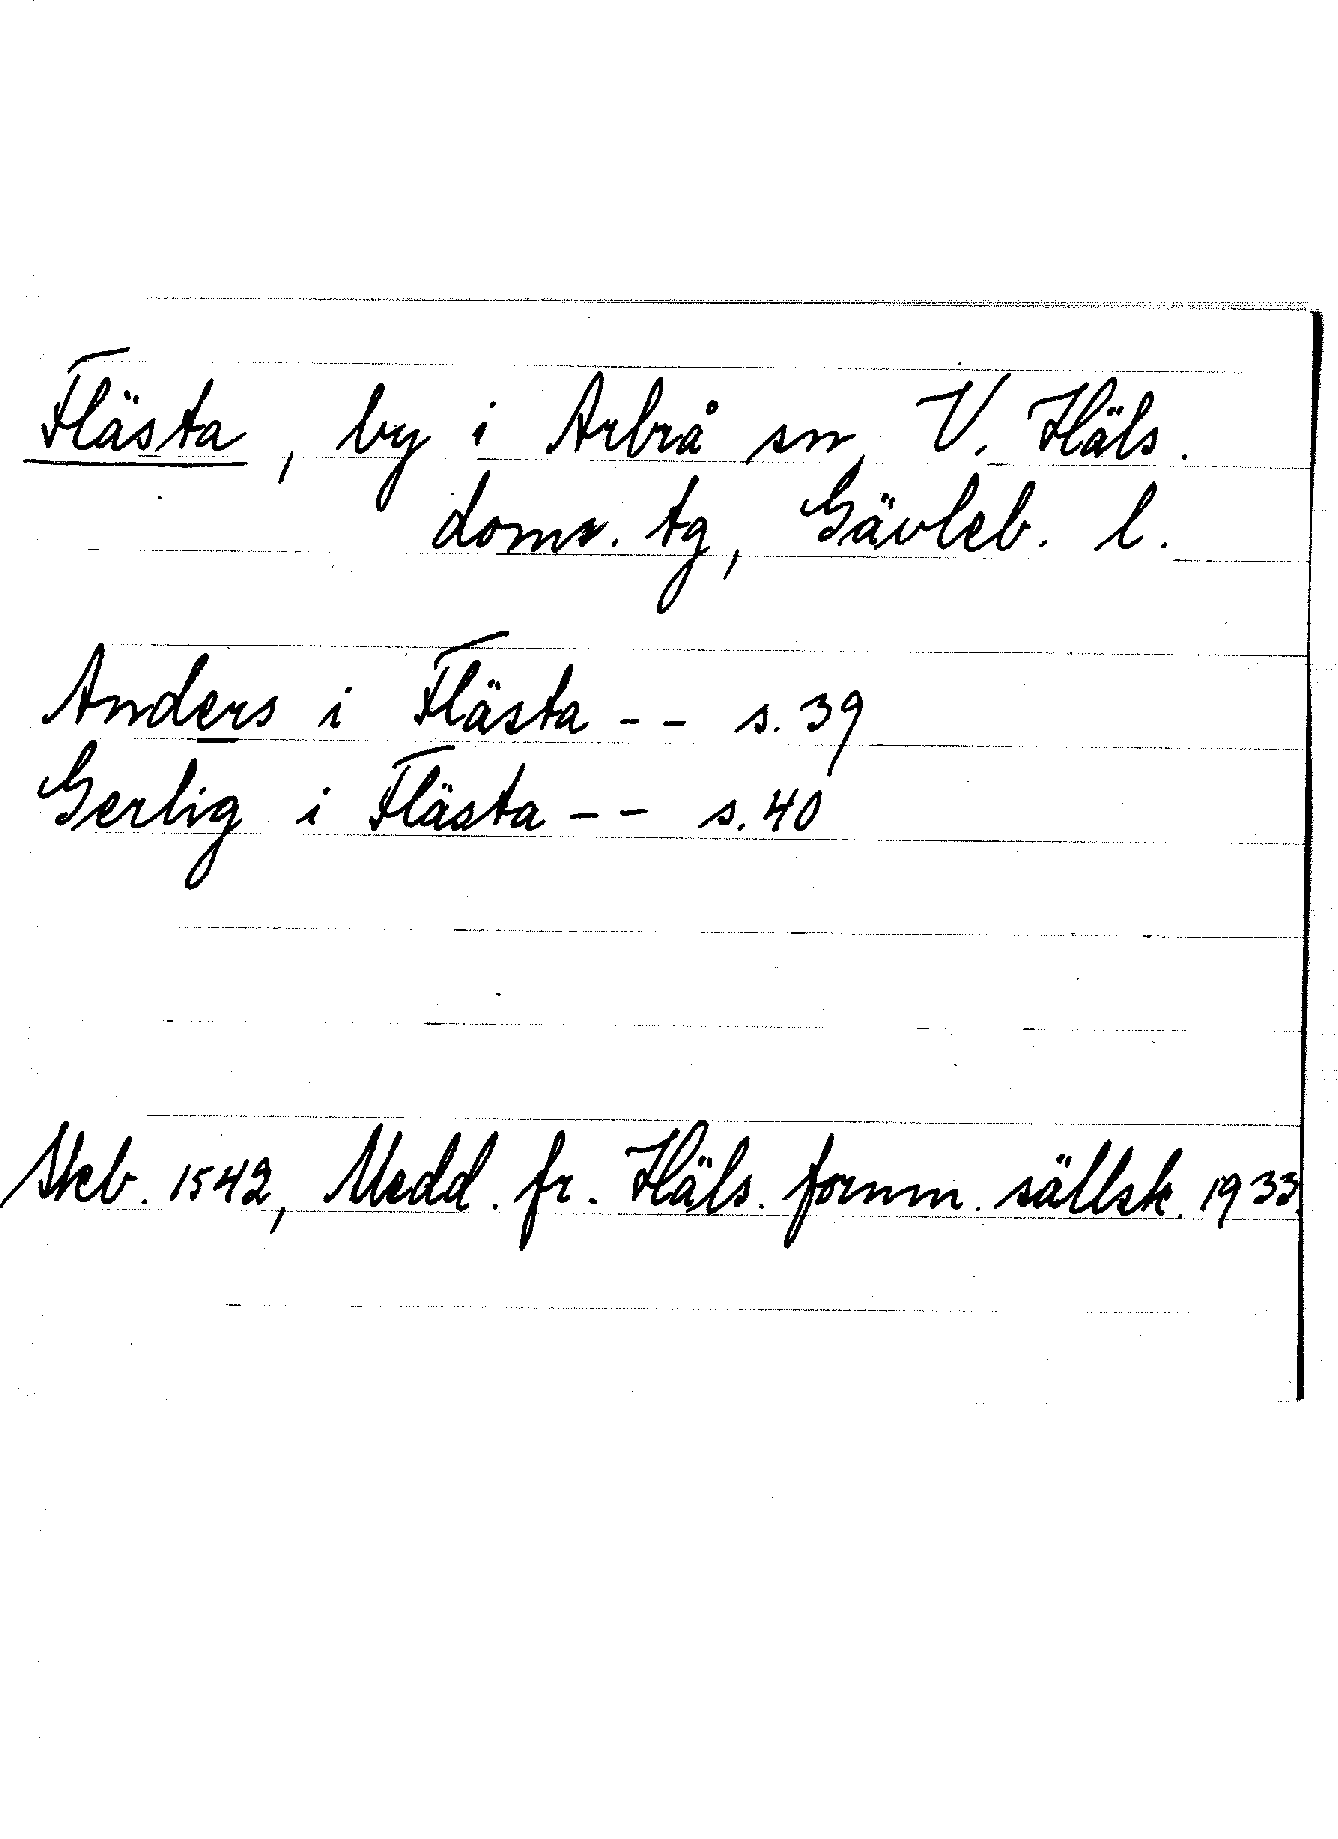 Flästa, by i Arbrå sn, V. Häls.
doms. tg, Gävleb. l.
Anders i Flästa -- s. 39
Gerlig i Flästa -- s. 40
Skb. 1542, Medd. fr. Häls. fornm. sällsk. 1933.